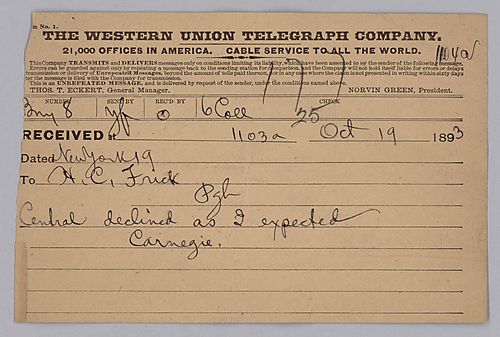 m No. 1.
THE WESTERN UNION TELEGRAPH COMPANY.
21,000 OFFICES IN AMERICA. CABLE SERVICE TO ALL THE WORLD.
This Company TRANSMITS and DELIVERS messages only on conditions limiting its liability, which have been assented to by the sender of the following message.
Errors can be guarded against only by repeating a message back to the sending station for comparison, and the Company will not hold itself liable for errors or delays
transmission or delivery of Unrepeated Messages, beyond the amount of tolls paid thereon, nor in any case where the claim is not presented in writing within sixty days
er the message is filed with the Company for transmission.
This is an UNREPEATED MESSAGE, and is delivered by request of the sender, under the conditions named above.
THOS. T. ECKERT, General Manager. NORVIN GREEN, President.
NUMBER SENT BY REC'D BY CHECK
8 O 6 Coll 25
RECEIVED at 1103a Oct 19 1893
Dated New York 19
To H. C. Frick
Pgh
Central declined as I expected
Carnegie.